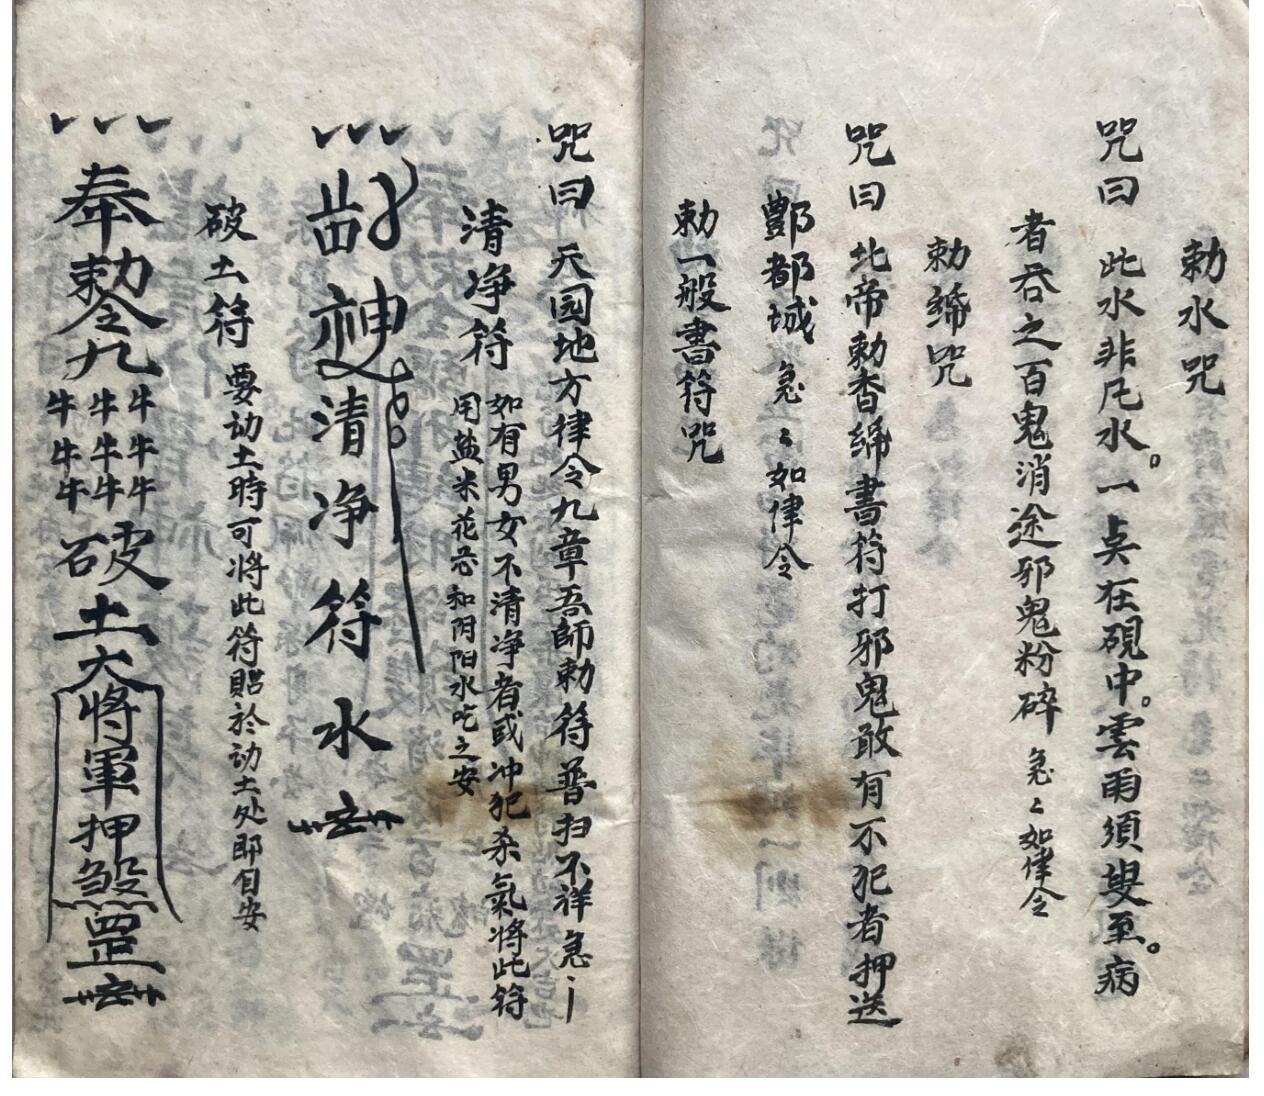 勅水咒
咒曰 此水非凡水。一点在硯中。雲雨須叟至。病
者吞之百鬼消途邪鬼粉碎 急〻如律令
勅締咒
咒曰 北帝勅香締書符打邪鬼敢有不犯者押送
酆都城 急〻如律令
勅一般書符咒
咒曰 天园地方律令九章吾師勅符普扫不祥急
清净符 如有男女不清净者或冲犯杀氣將此符
用盐米花 和阴阳水吃之安
神清净符水
破土符 要动土時可將此符貼於动土处即自安
奉勅令九
牛牛牛
牛牛牛
牛牛牛
破土大將軍押煞罡